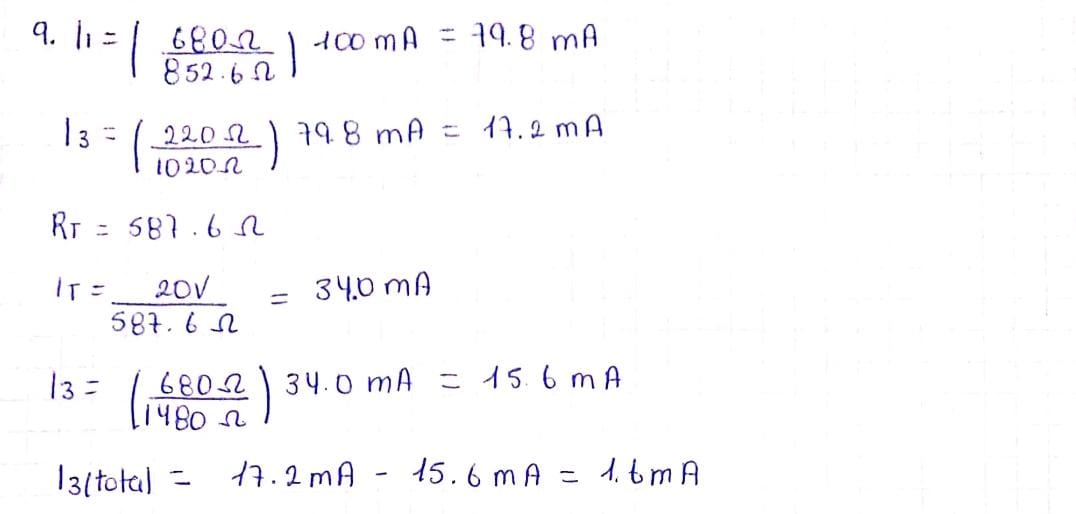 9. I1 = ( 680Ω / 852.6Ω ) 100 mA = 79.8 mA
I3 = ( 220Ω / 1020Ω ) 79.8 mA = 17.2 mA
RT = 587.6 Ω
IT = 20V / 587.6 Ω = 34.0 mA
I3 = ( 680Ω / 1480 Ω ) 34.0 mA = 15.6 mA
I3(total) = 17.2 mA - 15.6 mA = 1.6 mA